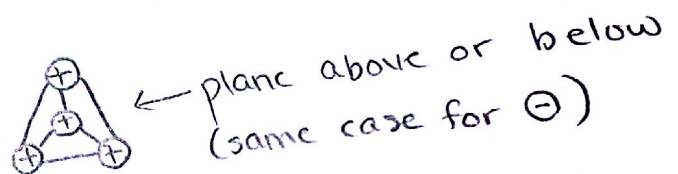 +
+
+ +
plane above or below
(same case for ⊖)